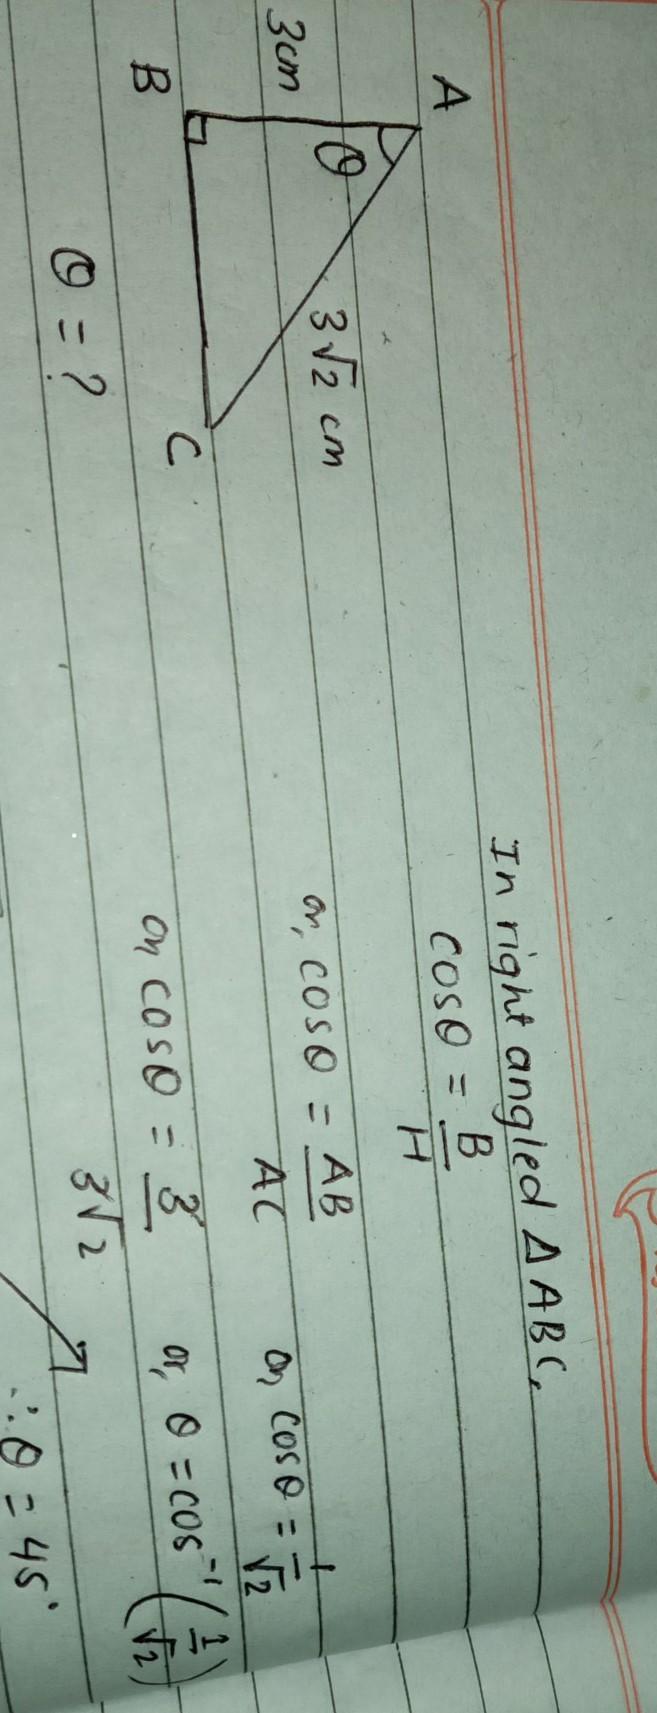 A
3cm
θ
3√2 cm
B
C
θ = ?
In right angled ΔABC,
cosθ = B/H
or, cosθ = AB/AC
or, cosθ = 3/3√2
or, cosθ = 1/√2
or, θ = cos⁻¹(1/√2)
∴ θ = 45°